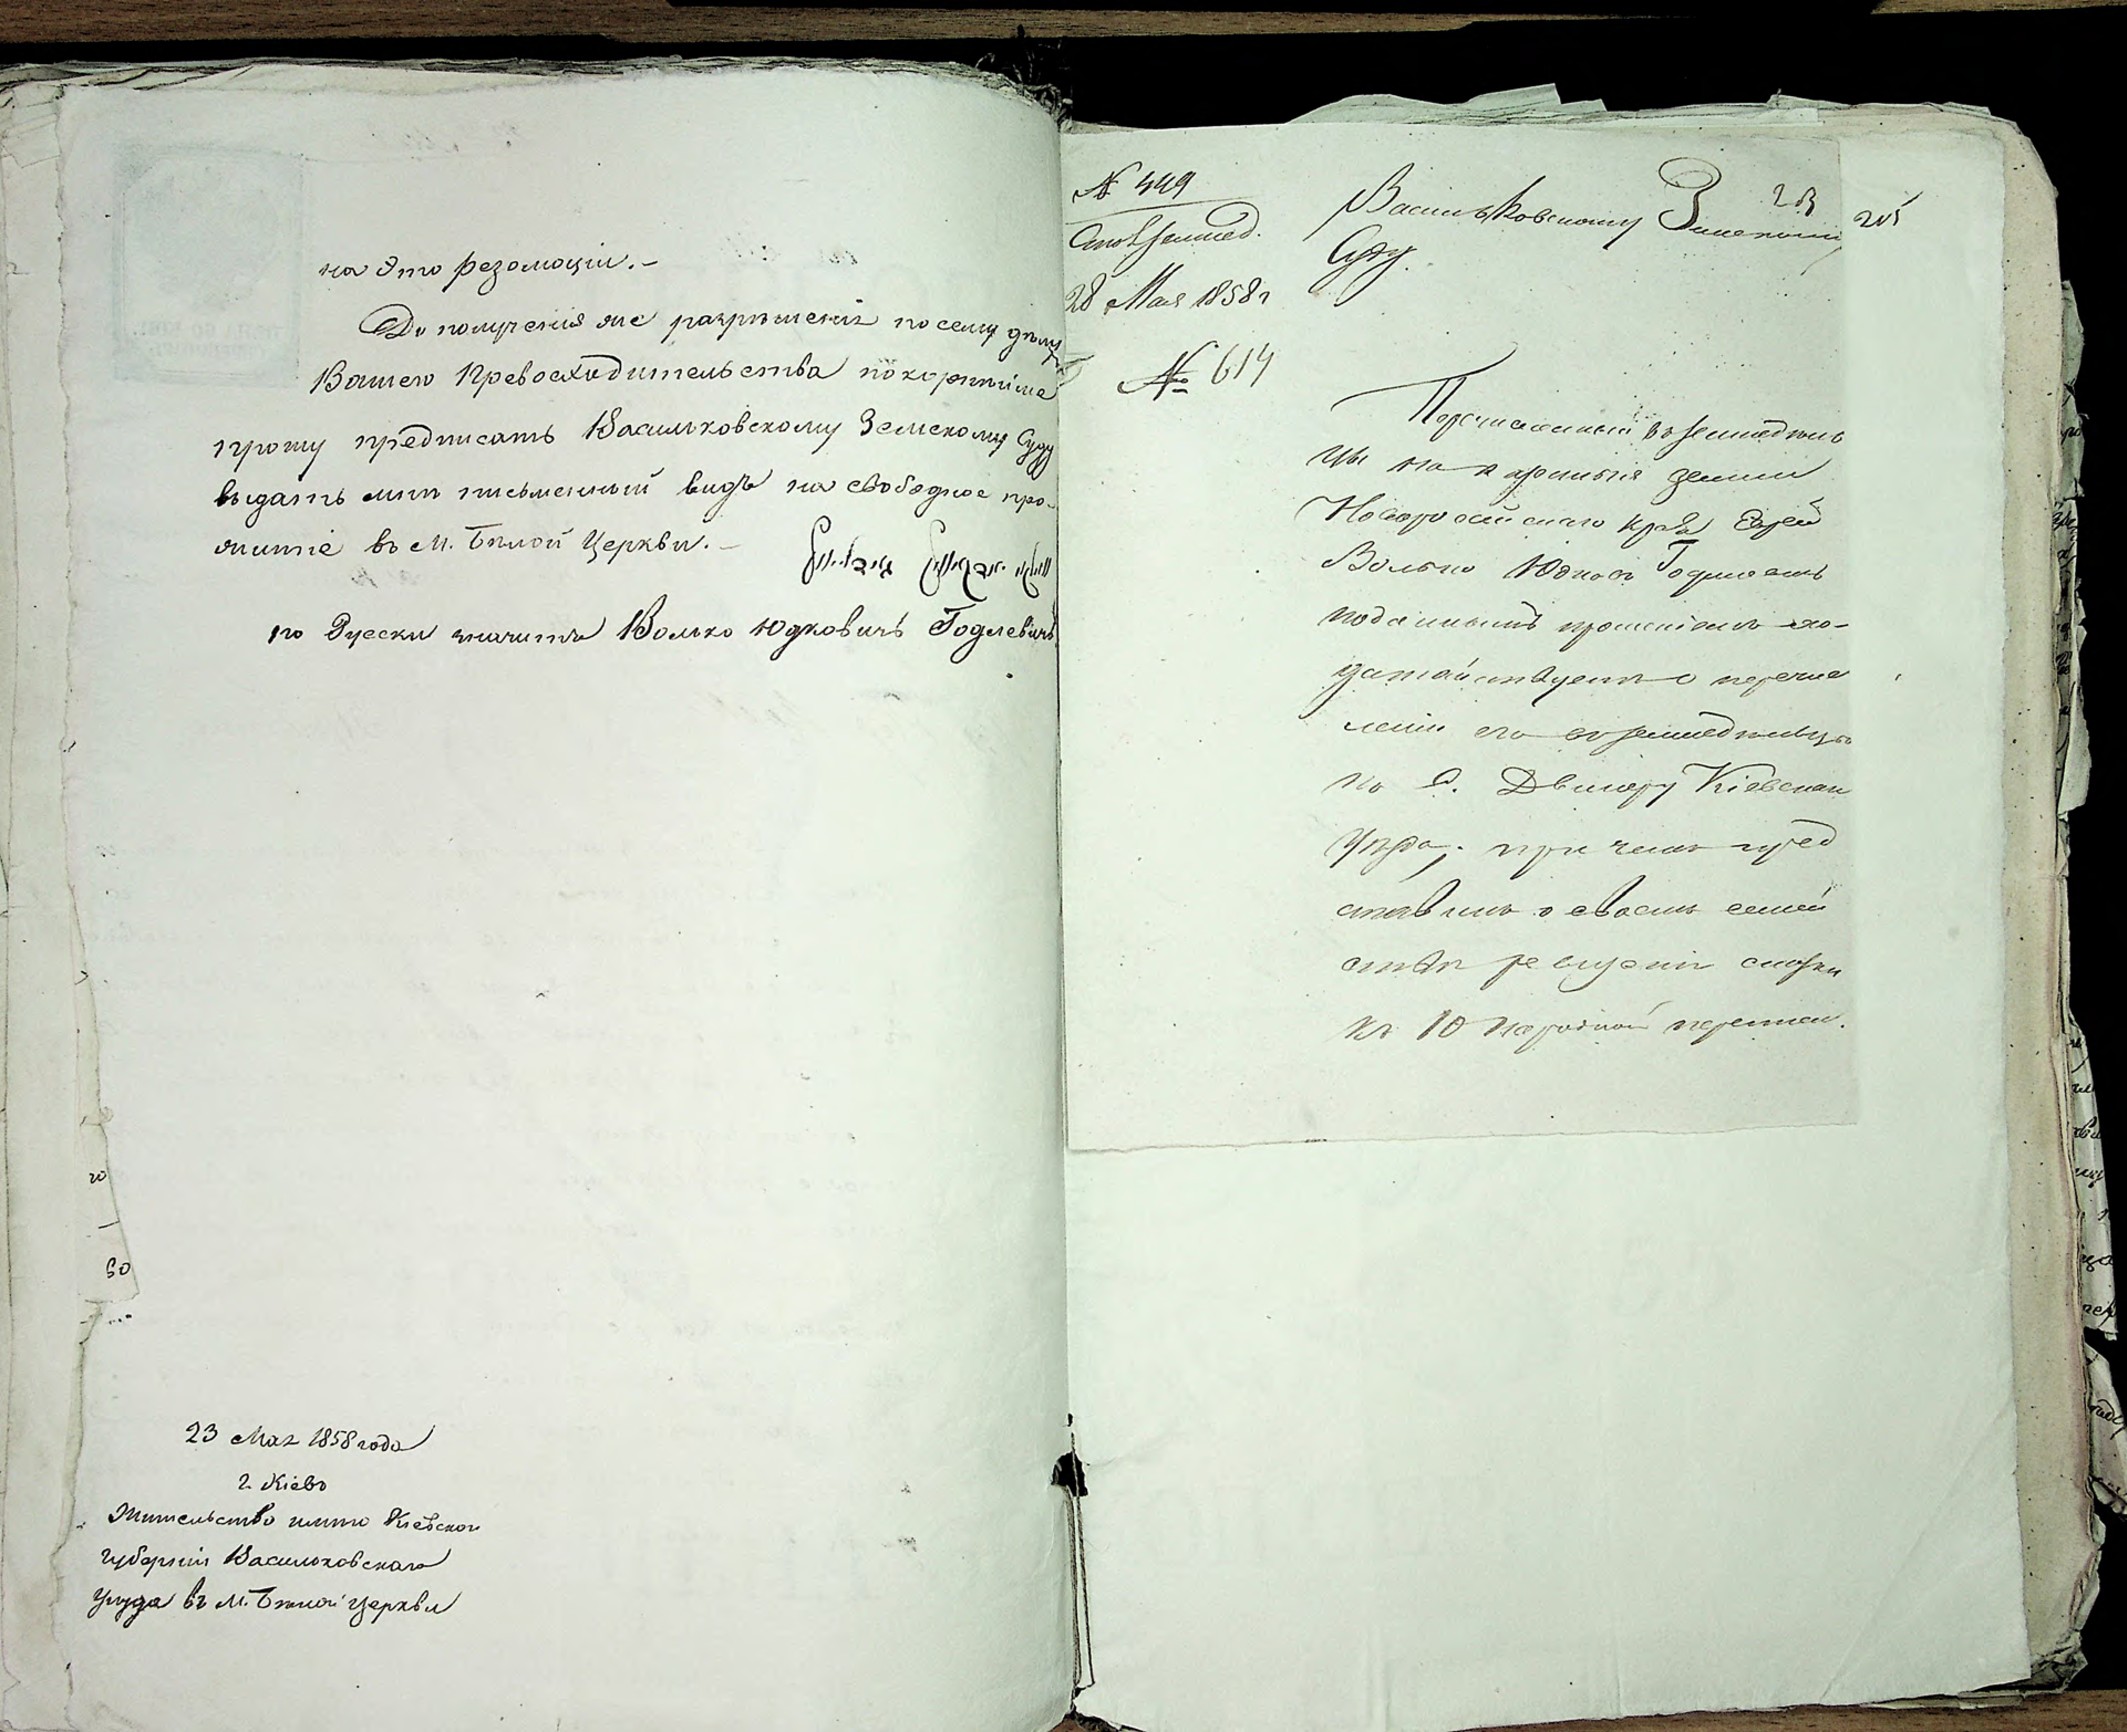 на это резолюціи. –
До полученія же разрѣшенія по сему дѣлу
Вашего Превосходительства покорнѣйше
прошу предписать Васильковскому Земскому Суду
выдать мнѣ письменный видъ на свободное про-
житіе въ М. Бѣлой Церкви. –
по Руски значитъ Волько Юдковичъ Годлевичъ
23 Мая 1858 года
г. Кіевъ
Жительство имѣю Кіевской
губерніи Васильковскаго
уѣзда въ М. Бѣлой церкви
№ 449
28 Мая 1858 г
№ 614
Васильковскому Земскому 205
Суду.
Перечисленный въ земледѣль
цы на казенныя земли
Новороссійскаго края Еврей
Волько Юдковъ
поданнымъ прошеніемъ хо-
датайствуетъ о перечис
леніи его въ земледѣльцы
по Кіевскаго
уѣзда; при чемъ пред
ставилъ о своемъ семей
ствѣ ревизскія сказки
къ 10 народной переписи.